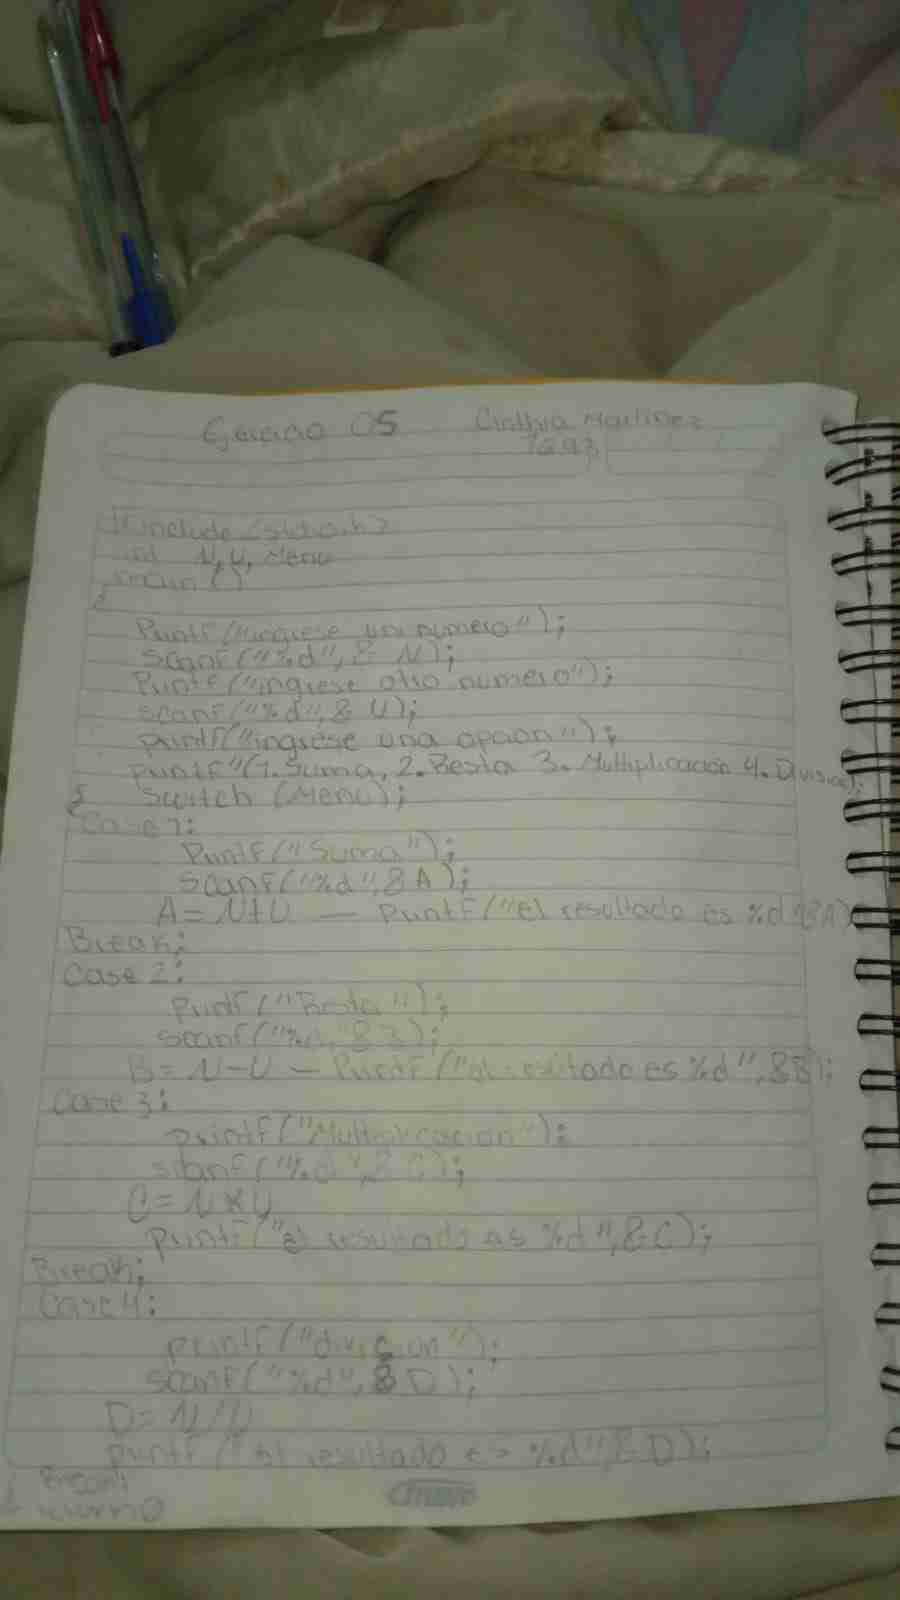 Ejercicio 05 Cinthya Martinez
1293
#include <stdio.h>
int N, U, Menu
main ()
{
Printf ("ingrese un numero");
scanf ("%d", & N);
Printf ("ingrese otro numero");
scanf ("%d", & U);
printf ("ingrese una opcion");
printf "(1. Suma, 2. Resta 3. Multiplicación 4. Division);
{ Switch (Menu);
Case 1:
Printf ("Suma");
scanf ("%d", & A);
A = N+U — Printf ("el resultado es %d" &A)
Break;
Case 2:
Printf ("Resta");
scanf ("%d, & B);
B = N-U — Printf ("el resultado es %d", &B);
Case 3:
printf ("Multiplicacion");
scanf ("%d", & C);
C = N * U
printf ("el resultado es %d", & C);
Break;
Case 4:
printf ("division");
scanf ("%d", & D);
D = N/U
printf ("el resultado es %d", & D);
Break;